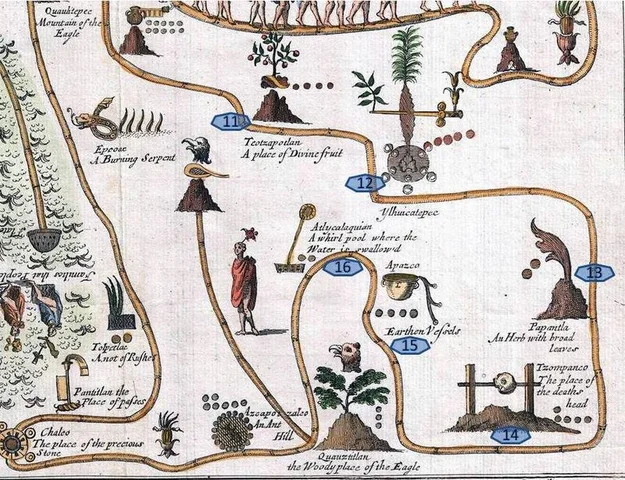 Quauhtepec
Mountain of the
Eagle
11
Teotzapotlan
A place of Divine fruit
Epcoac
A Burning Serpent
12
Ylhuicatepec
Atlycalaquian
A whirl pool where the
Water is swallow'd
16
Apazco
Earthen Vessels
15
13
Papantla
An Herb with broad
leaves
Tzompanco
The place of
the deaths
head
14
Tolpetlac
A not of Rushes
Pantitlan the
Place of passes
Chalco
The place of the precious
Stone
Azcapotzaleo
An Ant
Hill
Quauztitlan
the Woody place of the Eagle